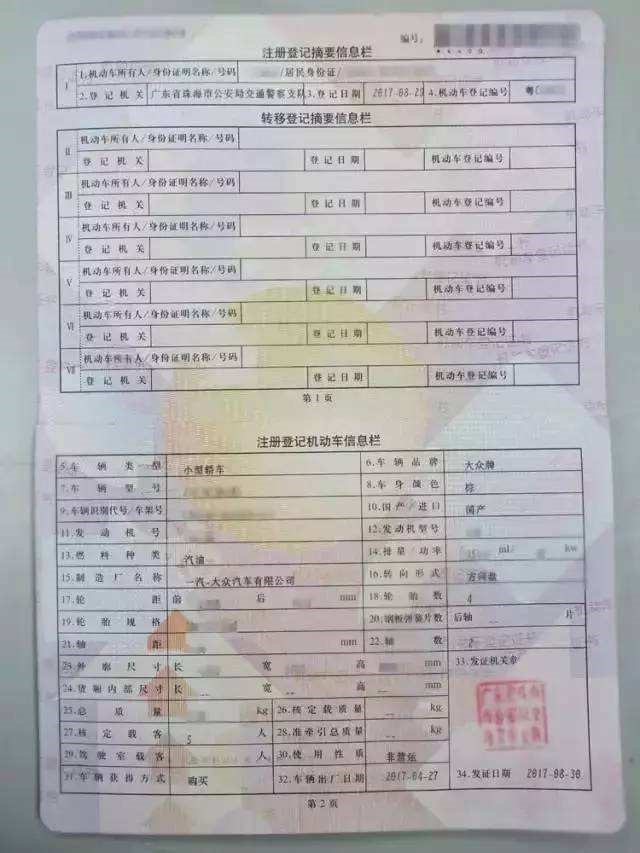 编号:
注册登记摘要信息栏
I 1.机动车所有人/身份证明名称/号码 /居民身份证/
2.登记机关 广东省珠海市公安局交通警察支队 3.登记日期 2017-08-29 4.机动车登记编号 粤
转移登记摘要信息栏
II 机动车所有人/身份证明名称/号码
登记机关 登记日期 机动车登记编号
III 机动车所有人/身份证明名称/号码
登记机关 登记日期 机动车登记编号
IV 机动车所有人/身份证明名称/号码
登记机关 登记日期 机动车登记编号
V 机动车所有人/身份证明名称/号码
登记机关 登记日期 机动车登记编号
VI 机动车所有人/身份证明名称/号码
登记机关 登记日期 机动车登记编号
VII 机动车所有人/身份证明名称/号码
登记机关 登记日期 机动车登记编号
第1页
注册登记机动车信息栏
5.车辆类型 小型轿车 6.车辆品牌 大众牌
7.车辆型号 8.车身颜色 棕
9.车辆识别代号/车架号 10.国产/进口 国产
11.发动机号 12.发动机型号
13.燃料种类 汽油 14.排量/功率 ml/ kw
15.制造厂名称 一汽-大众汽车有限公司 16.转向形式 方向盘
17.轮距 前 后 mm 18.轮胎数 4
19.轮胎规格 20.钢板弹簧片数 后轴 片
21.轴距 mm 22.轴数 2
23.外廓尺寸 长 宽 高 mm 33.发证机关章
24.货厢内部尺寸 长 宽 高 mm
25.总质量 kg 26.核定载质量 kg
27.核定载客 5 人 28.准牵引总质量 kg
29.驾驶室载客 人 30.使用性质 非营运
31.车辆获得方式 购买 32.车辆出厂日期 2017-04-27 34.发证日期 2017-08-30
第2页